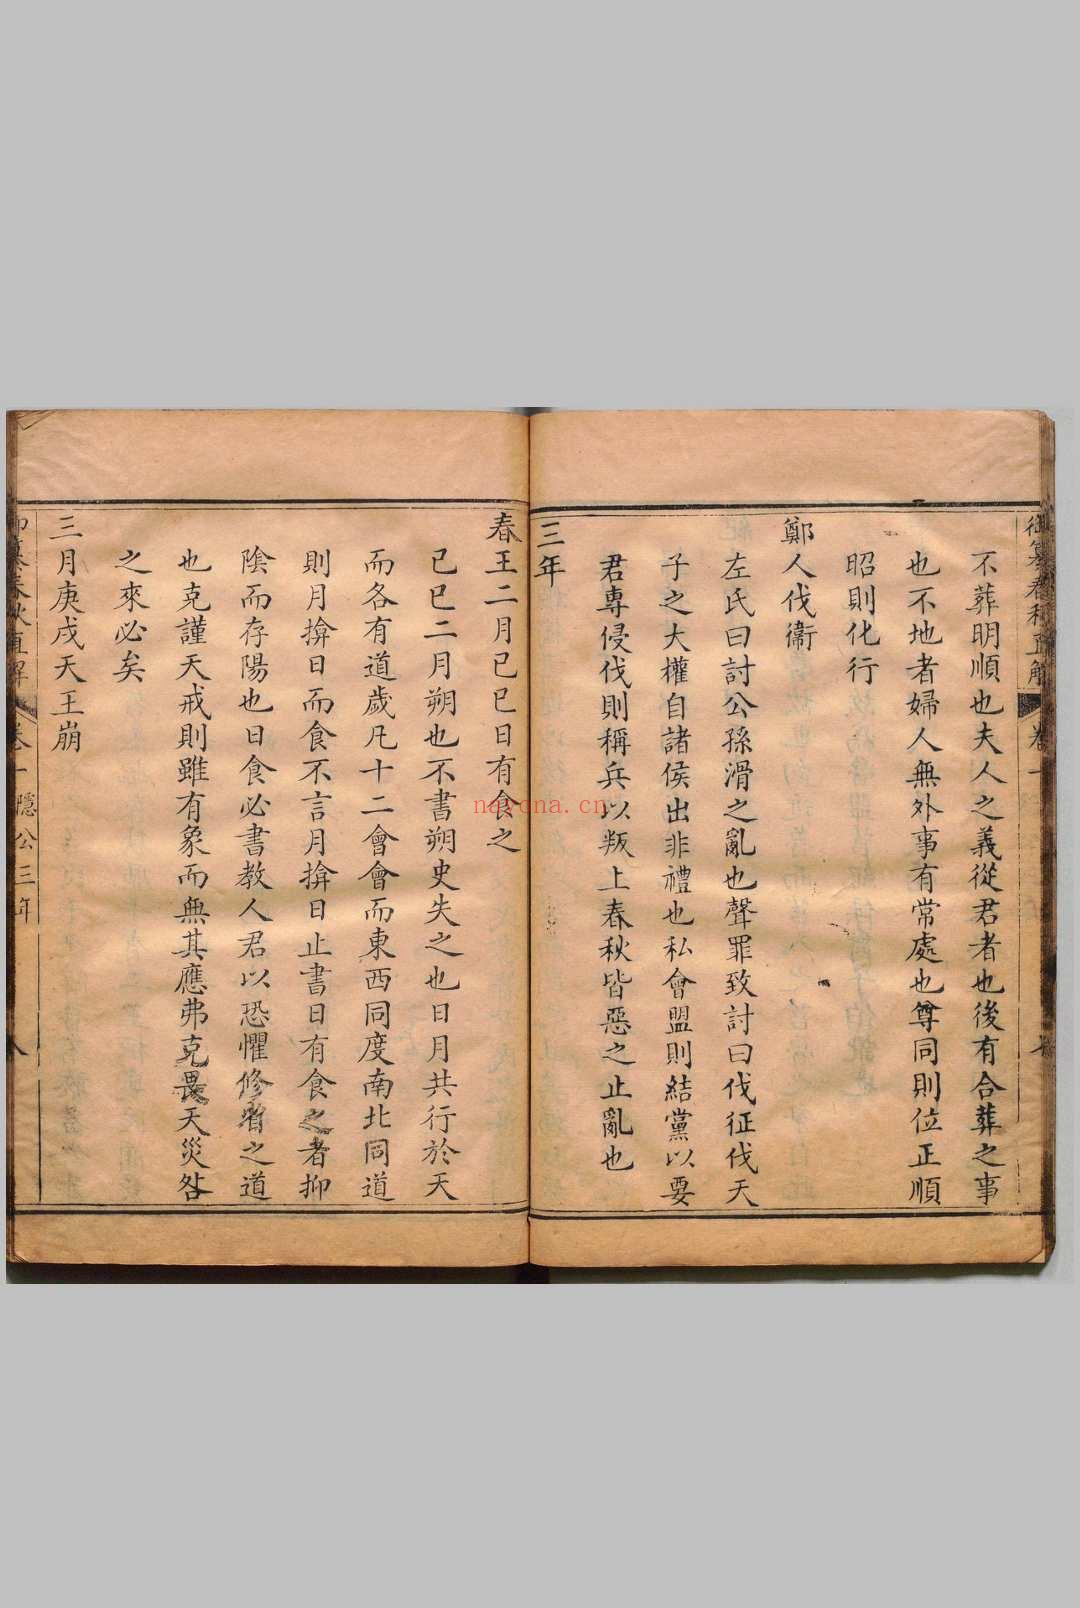 不葬明順也夫人之義從君者也後有合葬之事
也不地者婦人無外事有常處也尊同則位正順
昭則化行
鄭人伐衞
左氏曰討公孫滑之亂也聲罪致討曰伐征伐天
子之大權自諸侯出非禮也私會盟則結黨以要
君專侵伐則稱兵以叛上春秋皆惡之止亂也
三年
春王二月己巳日有食之
己巳二月朔也不書朔史失之也日月共行於天
而各有道歲凡十二會會而東西同度南北同道
則月揜日而食不言月揜日止書日有食之者抑
陰而存陽也日食必書教人君以恐懼修省之道
也克謹天戒則雖有象而無其應弗克畏天災咎
之來必矣
三月庚戌天王崩
御纂春秋直解
卷一
御纂春秋直解
卷一 隱公三年
八
nayona.cn